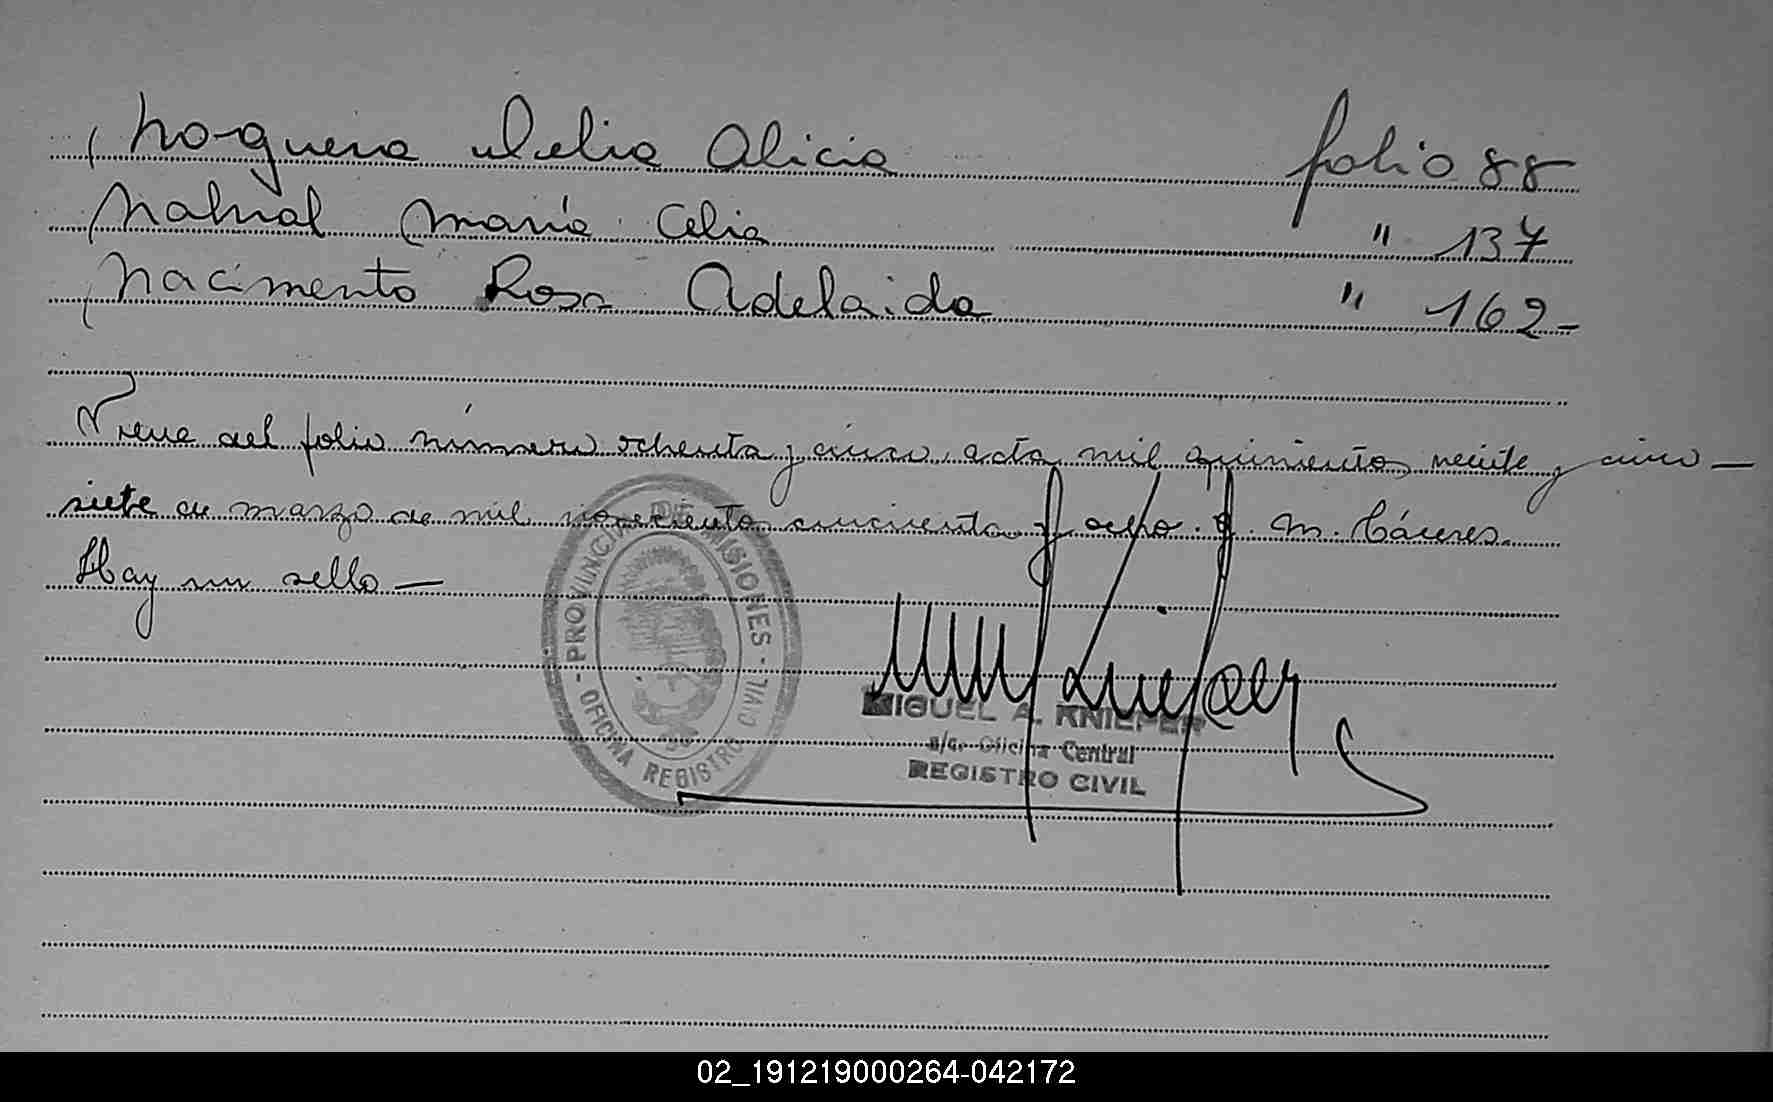 Noguera Delia Alicia folio 88
Natual María Celia " 137
Nacimento Rosa Adelaida " 162-
Viene del folio número ochenta y cinco, acta mil quinientos veinte y cinco —
siete de marzo de mil novecientos cincuenta y ocho. J. M. Cáceres.
Hay un sello —
PROVINCIA DE MISIONES
- OFICINA REGISTRO CIVIL -
MIGUEL A. KNIEPER
a/c. Oficina Central
REGISTRO CIVIL
02_191219000264-042172